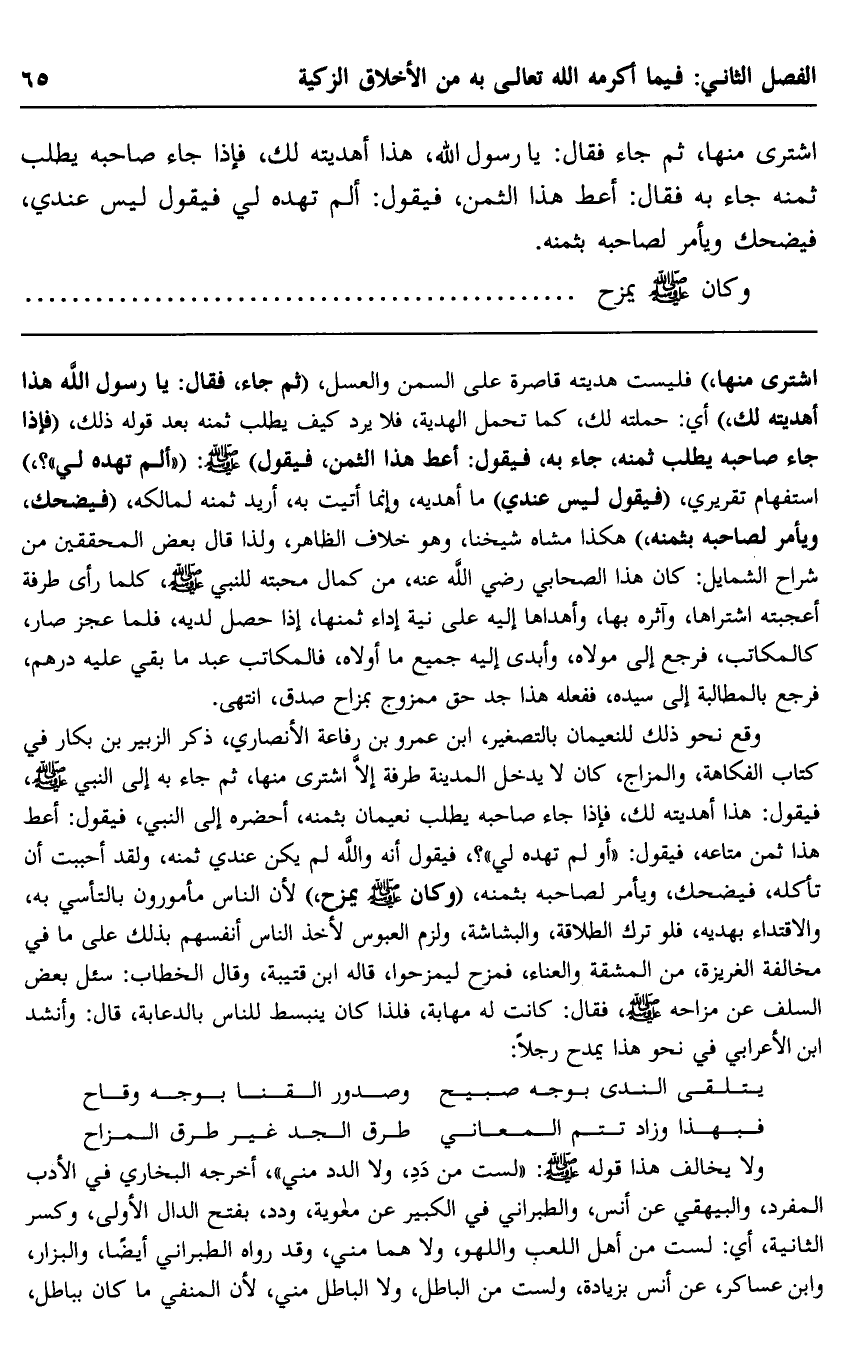 الفصل الثاني: فيما أكرمه الله تعالى به من الأخلاق الزكية ٦٥
اشترى منها، ثم جاء فقال: يا رسول الله، هذا أهديته لك، فإذا جاء صاحبه يطلب
ثمنه جاء به فقال: أعط هذا الثمن، فيقول: ألم تهده لي فيقول ليس عندي،
فيضحك ويأمر لصاحبه بثمنه.
وكان ﷺ يمزح ..............................................
اشترى منها،) فليست هديته قاصرة على السمن والعسل، (ثم جاء، فقال: يا رسول اللَّه هذا
أهديته لك،) أي: حملته لك، كما تحمل الهدية، فلا يرد كيف يطلب ثمنه بعد قوله ذلك، (فإذا
جاء صاحبه يطلب ثمنه، جاء به، فيقول: أعط هذا الثمن، فيقول) ﷺ: («ألم تهده لي»؟،)
استفهام تقريري، (فيقول ليس عندي) ما أهديه، وإنما أتيت به، أريد ثمنه لمالكه، (فيضحك،
ويأمر لصاحبه بثمنه،) هكذا مشاه شيخنا، وهو خلاف الظاهر، ولذا قال بعض المحققين من
شراح الشمايل: كان هذا الصحابي رضي اللَّه عنه، من كمال محبته للنبي ﷺ، كلما رأى طرفة
أعجبته اشتراها، وآثره بها، وأهداها إليه على نية إداء ثمنها، إذا حصل لديه، فلما عجز صار،
كالمكاتب، فرجع إلى مولاه، وأبدى إليه جميع ما أولاه، فالمكاتب عبد ما بقي عليه درهم،
فرجع بالمطالبة إلى سيده، ففعله هذا جد حق ممزوج بمزاح صدق، انتهى.
وقع نحو ذلك للنعيمان بالتصغير، ابن عمرو بن رفاعة الأنصاري، ذكر الزبير بن بكار في
كتاب الفكاهة، والمزاج، كان لا يدخل المدينة طرفة إلاَّ اشترى منها، ثم جاء به إلى النبي ﷺ،
فيقول: هذا أهديته لك، فإذا جاء صاحبه يطلب نعيمان بثمنه، أحضره إلى النبي، فيقول: أعط
هذا ثمن متاعه، فيقول: «أو لم تهده لي»؟، فيقول أنه واللَّه لم يكن عندي ثمنه، ولقد أحببت أن
تأكله، فيضحك، ويأمر لصاحبه بثمنه، (وكان ﷺ يمزح،) لأن الناس مأمورون بالتأسي به،
والاقتداء بهديه، فلو ترك الطلاقة، والبشاشة، ولزم العبوس لأخذ الناس أنفسهم بذلك على ما في
مخالفة الغريزة، من المشقة والعناء، فمزح ليمزحوا، قاله ابن قتيبة، وقال الخطاب: سئل بعض
السلف عن مزاحه ﷺ، فقال: كانت له مهابة، فلذا كان ينبسط للناس بالدعابة، قال: وأنشد
ابن الأعرابي في نحو هذا يمدح رجلاً:
يتلقى الندى بوجه صبيح وصدور القنا بوجه وقاح
فبهذا وزاد تتم المعاني طرق الجد غير طرق المزاح
ولا يخالف هذا قوله ﷺ: «لست من دَدِ، ولا الدد مني»، أخرجه البخاري في الأدب
المفرد، والبيهقي عن أنس، والطبراني في الكبير عن مغوية، ودد، بفتح الدال الأولى، وكسر
الثانية، أي: لست من أهل اللعب واللهو، ولا هما مني، وقد رواه الطبراني أيضًا، والبزار،
وابن عساكر، عن أنس بزيادة، ولست من الباطل، ولا الباطل مني، لأن المنفي ما كان بباطل،